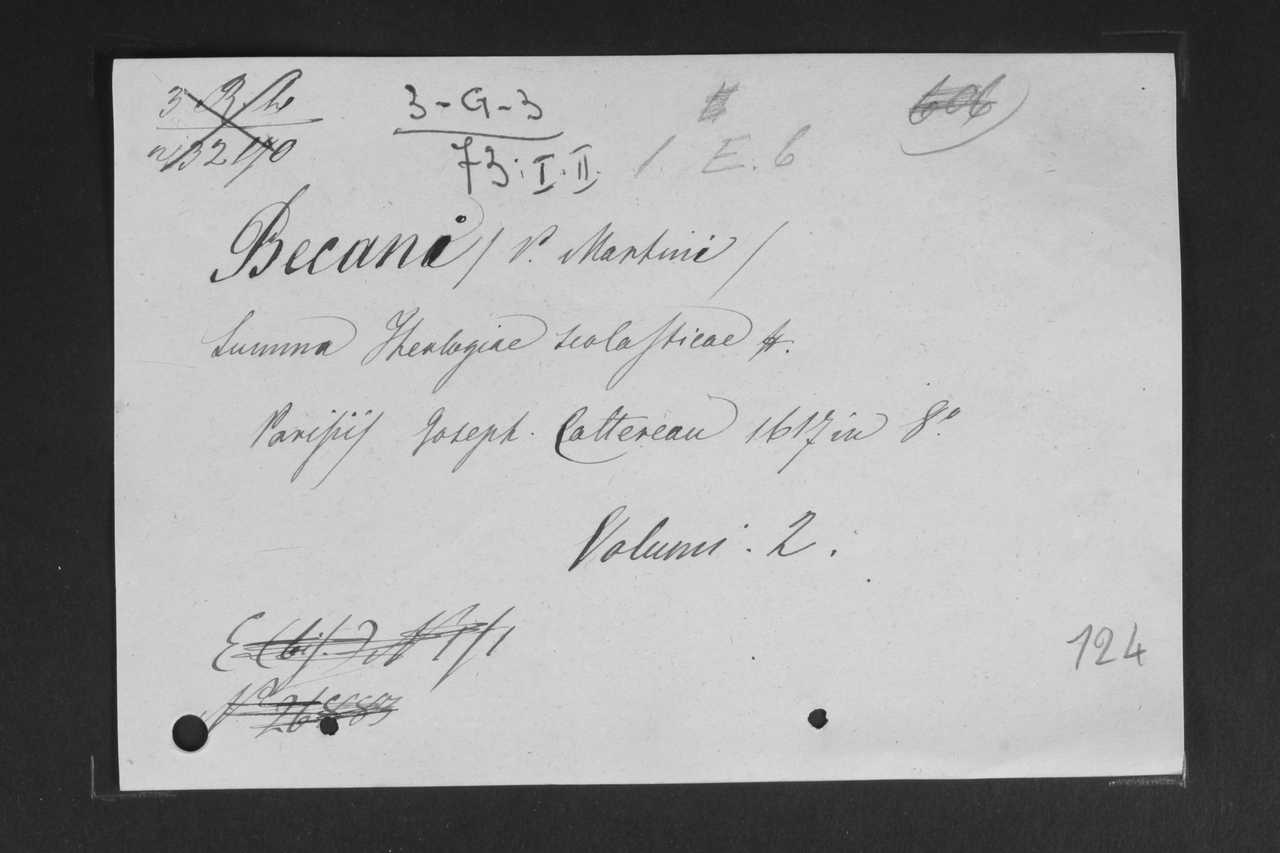 3-G-3
73: I. II.
1. E. 6
606
Becani / P. Martini /
Summa Theologiae scolasticae
Parisiis Joseph. Cottereau 1617 in 8°.
Volumi. 2.
124
N° 26883